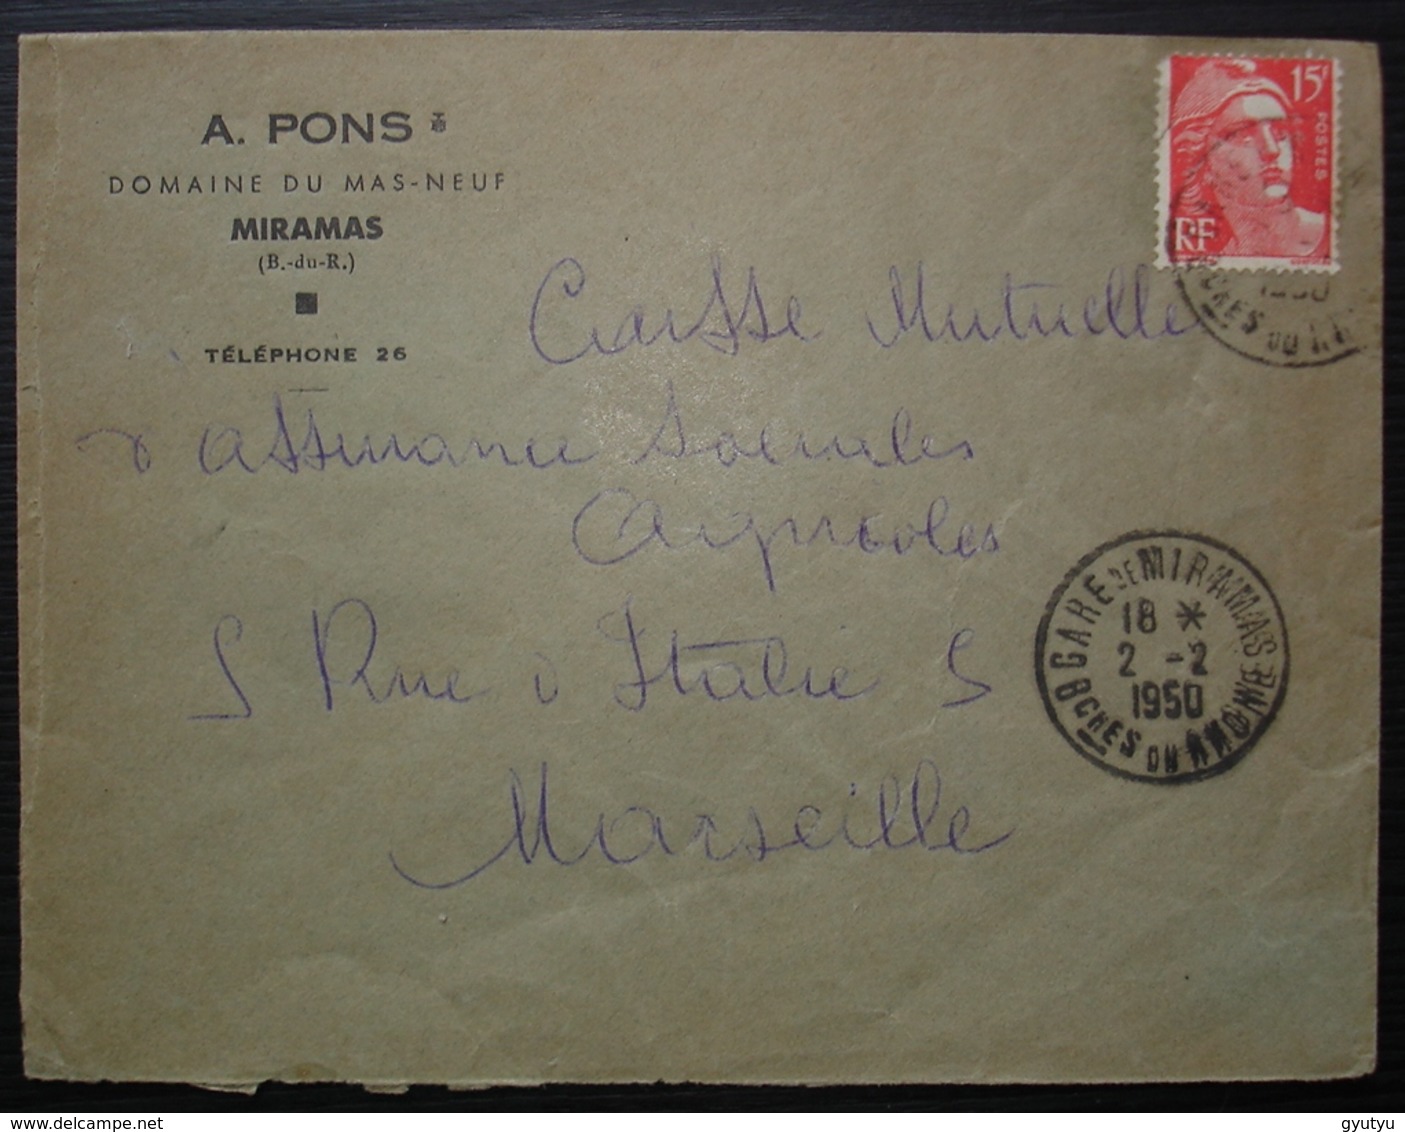 A. PONS
DOMAINE DU MAS-NEUF
MIRAMAS
(B.-du-R.)
TÉLÉPHONE 26
15F
POSTES
RF
1950
BCHES DU
Caisse Mutuelle
d assurance Sociales
Agricoles
5 Rue d Italie 5
Marseille
GARE DE MIRAMAS
18 *
2 -2
1950
BCHES DU RHONE
gyutyu